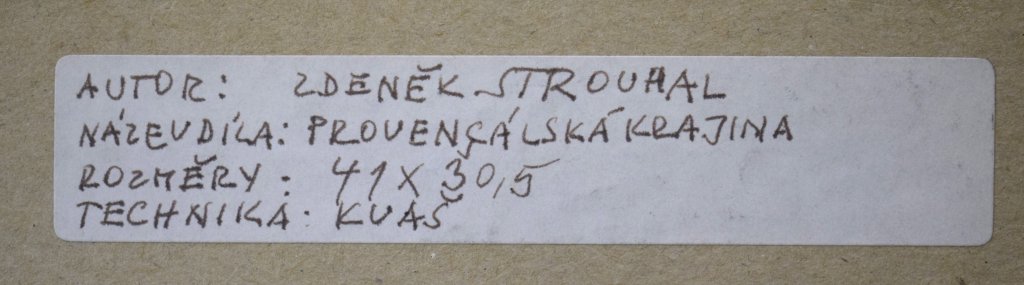 AUTOR: ZDENĚK STROUHAL
NÁZEV DÍLA: PROVENÇÁLSKÁ KRAJINA
ROZMĚRY: 41 X 30,5
TECHNIKA: KVAŠ